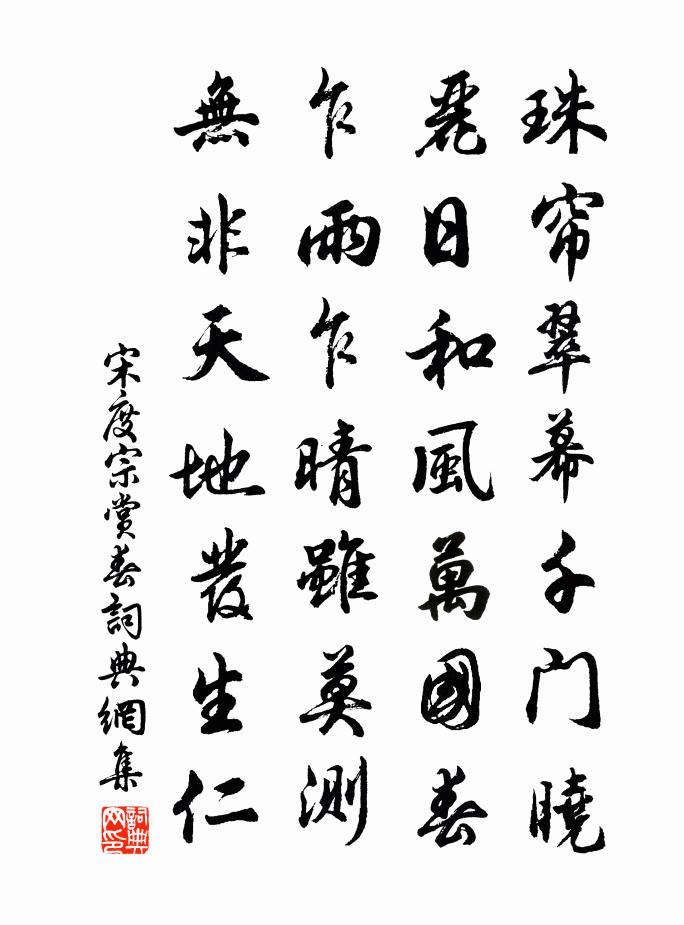 珠帘翠幕千门曉
麗日和風萬國春
乍雨乍晴雖莫測
無非天地發生仁
宋度宗賞春詞典網集
詞典网印